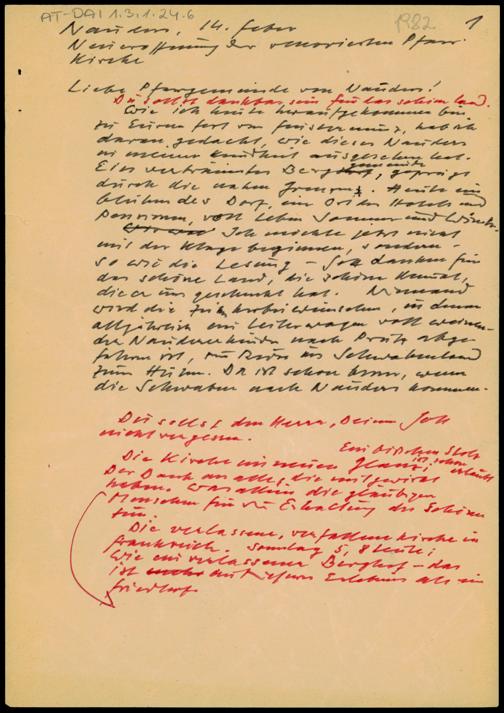 AT-DAI 1.3.1.24.6
1982 1
Nauders, 14. Feber
Neueröffnung der renovierten Pfarr-
Kirche
Liebe Pfarrgemeinde von Nauders!
Du sollst dankbar sein für das schöne Land.
Wie ich heute heraufgekommen bin
zu Eurem Fest von Finstermünz, hab ich
daran gedacht, wie dieses Nauders
in meiner Kindheit ausgesehen hat.
Ein verträumtes Berg, geprägt
durch die nahen Grenzen. Heute ein
blühendes Dorf, ein Ort der Hotels und
Pensionen, voll Leben Sommer und Winter.
Ich möchte jetzt nicht
mit der Klage beginnen, sondern -
so wie die Lesung - Gott danken für
das schöne Land, die schöne Heimat,
die er uns geschenkt hat. Niemand
wird die Zeit herbeiwünschen, in denen
alljährlich ein Leiterwagen voll weinen-
der Nauderer Kinder nach Prutz abge-
fahren ist, zur Reise ins Schwabenland
zum Hüten. Da ist schon besser, wenn
die Schwaben nach Nauders kommen.
Du sollst den Herrn, Deinen Gott
nicht vergessen.
Ein bißchen Stolz
ist schon erlaubt
Die Kirche in neuem Glanz;
Der Dank an alle, die mitgewirkt
haben. Vor allem die gläubigen
Menschen für die Erhaltung des Schönen
tun.
Die verlassene, verfallene Kirche in
Frankreich. Sonntag 5, 8 Leute;
Wie ein verlassener Berghof - das
ist ein tieferes Erlebnis als ein
Friedhof